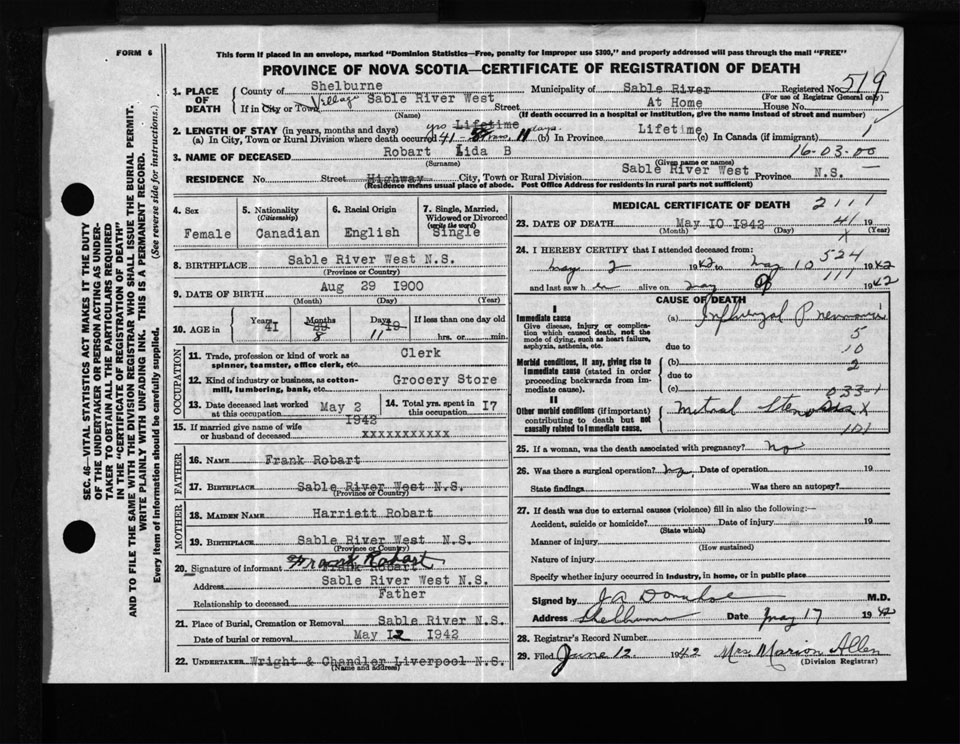 FORM 6
This form if placed in an envelope, marked "Dominion Statistics—Free, penalty for improper use $300," and properly addressed will pass through the mail "FREE"
PROVINCE OF NOVA SCOTIA—CERTIFICATE OF REGISTRATION OF DEATH
SEC. 46—VITAL STATISTICS ACT MAKES IT THE DUTY
OF THE UNDERTAKER OR PERSON ACTING AS UNDER-
TAKER TO OBTAIN ALL THE PARTICULARS REQUIRED
IN THE "CERTIFICATE OF REGISTRATION OF DEATH"
AND TO FILE THE SAME WITH THE DIVISION REGISTRAR WHO SHALL ISSUE THE BURIAL PERMIT.
WRITE PLAINLY WITH UNFADING INK. THIS IS A PERMANENT RECORD.
Every item of information should be carefully supplied. (See reverse side for instructions.)
1. PLACE OF DEATH
County of Shelburne Municipality of Sable River Registered No. 519
(For use of Registrar General only)
If in City or Town Village Sable River West Street At Home House No.
(Name) (If death occurred in a hospital or institution, give the name instead of street and number)
2. LENGTH OF STAY (in years, months and days) yrs Lifetime days
(a) In City, Town or Rural Division where death occurred 41 8 mos. 11 (b) In Province Lifetime (c) In Canada (if immigrant) 1
3. NAME OF DECEASED Robart Lida B 16-03-00
(Surname) (Given name or names)
RESIDENCE No. Street Highway City, Town or Rural Division Sable River West Province N.S.
(Residence means usual place of abode. Post Office Address for residents in rural parts not sufficient)
4. Sex
Female
5. Nationality
(Citizenship)
Canadian
6. Racial Origin
English
7. Single, Married,
Widowed or Divorced
(write the word)
Single
8. BIRTHPLACE Sable River West N.S.
(Province or Country)
9. DATE OF BIRTH Aug 29 1900
(Month) (Day) (Year)
10. AGE in Years 41 Months 8 Days 19 11 If less than one day old
hrs. or min.
OCCUPATION
11. Trade, profession or kind of work as Clerk
spinner, teamster, office clerk, etc.
12. Kind of industry or business, as cotton- Grocery Store
mill, lumbering, bank, etc.
13. Date deceased last worked at this occupation May 2 1942
14. Total yrs. spent in this occupation 17
15. If married give name of wife
or husband of deceased xxxxxxxxxxx
FATHER
16. NAME Frank Robart
17. BIRTHPLACE Sable River West N.S.
(Province or Country)
MOTHER
18. MAIDEN NAME Harriett Robart
19. BIRTHPLACE Sable River West N.S.
(Province or Country)
Frank Robart
20. Signature of informant Frank Robart
Address Sable River West N.S.
Relationship to deceased Father
21. Place of Burial, Cremation or Removal Sable River N.S.
Date of burial or removal May 12 1942
22. UNDERTAKER Wright & Chandler Liverpool N.S.
(Name and address)
MEDICAL CERTIFICATE OF DEATH 2111
23. DATE OF DEATH May 10 1942 41 19
(Month) (Day) (Year)
X
24. I HEREBY CERTIFY that I attended deceased from: 524
May 2 1942 to May 10 1942
and last saw her alive on May 9 111 1942
CAUSE OF DEATH
I
Immediate cause
Give disease, injury or complica-
tion which caused death, not the
mode of dying, such as heart failure,
asphyxia, asthenia, etc.
(a) Influenzal Pneumonia 1
5
due to 10
Morbid conditions, if any, giving rise to
immediate cause (stated in order
proceeding backwards from im-
mediate cause).
(b) 2
due to
(c) 033-1
II
Other morbid conditions (if important)
contributing to death but not
causally related to immediate cause.
Mitral Stenosis X
101
25. If a woman, was the death associated with pregnancy? No
26. Was there a surgical operation? No Date of operation 19
State findings Was there an autopsy?
27. If death was due to external causes (violence) fill in also the following:—
Accident, suicide or homicide? Date of injury 19
(State which)
Manner of injury
(How sustained)
Nature of injury
Specify whether injury occurred in industry, in home, or in public place
Signed by J A Donahoe M.D.
Address Shelburne Date May 17 1942
28. Registrar's Record Number
29. Filed June 12 1942 Mrs. Marion Allen
(Division Registrar)